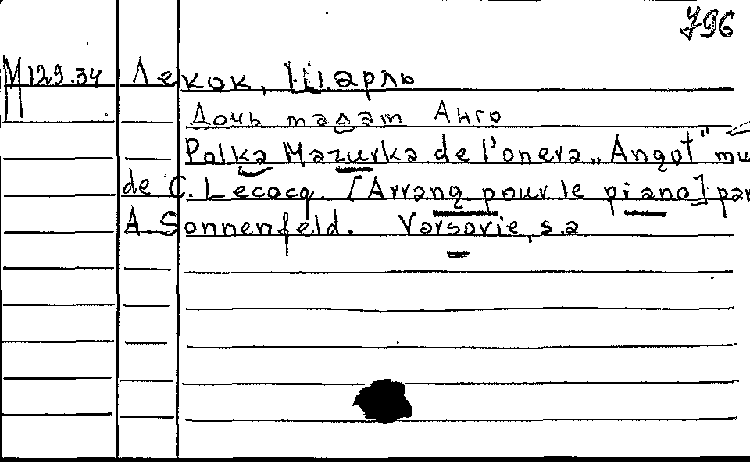 796
М 129.34 Лекок, Шарль
Дочь мадам Анго
Polka Mazurka de l'opera „Angot" mu
de C. Lecocq. [Arrang pour le piano] par
A. Sonnenfeld. Varsovie, s.a